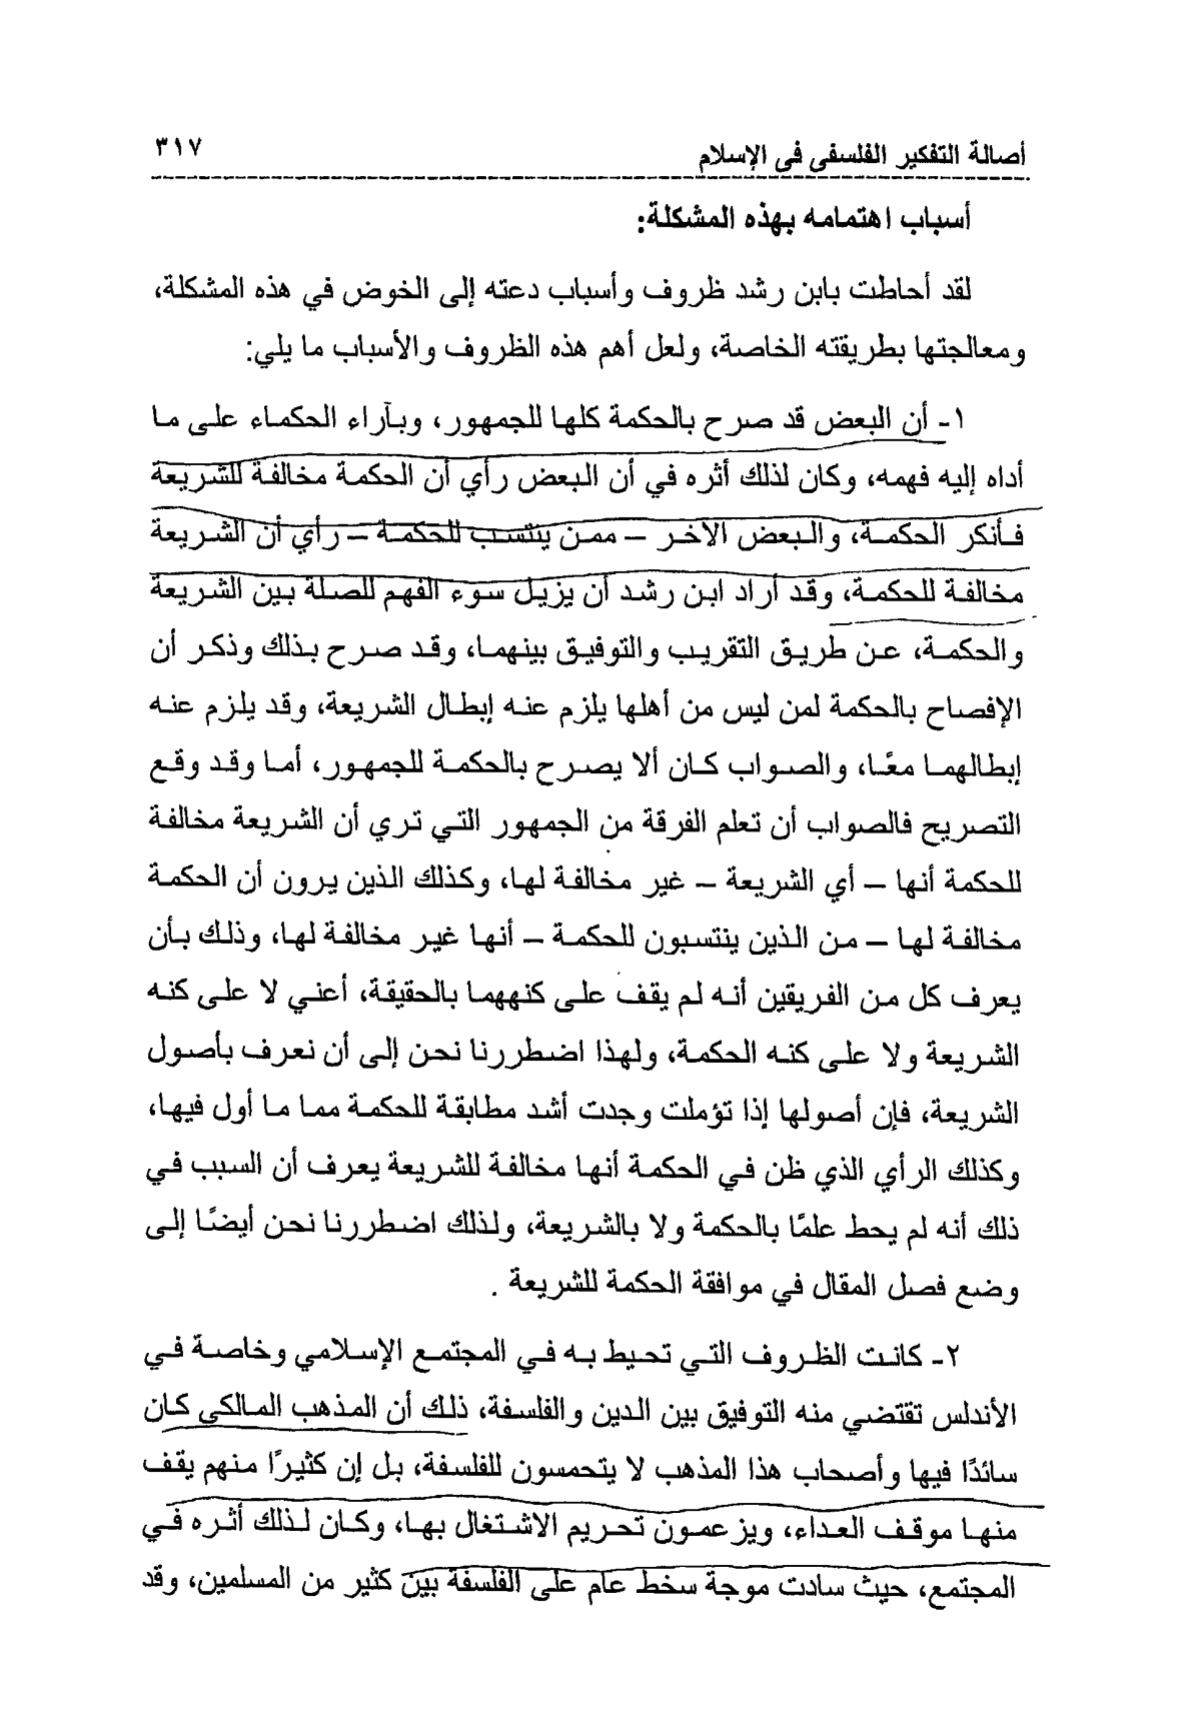 أصالة التفكير الفلسفى فى الإسلام ٣١٧
أسباب اهتمامه بهذه المشكلة:
لقد أحاطت بابن رشد ظروف وأسباب دعته إلى الخوض في هذه المشكلة،
ومعالجتها بطريقته الخاصة، ولعل أهم هذه الظروف والأسباب ما يلي:
١- أن البعض قد صرح بالحكمة كلها للجمهور، وبآراء الحكماء على ما
أداه إليه فهمه، وكان لذلك أثره في أن البعض رأي أن الحكمة مخالفة للشريعة
فأنكر الحكمة، والبعض الآخر – ممن ينتسب للحكمة – رأي أن الشريعة
مخالفة للحكمة، وقد أراد ابن رشد أن يزيل سوء الفهم للصلة بين الشريعة
والحكمة، عن طريق التقريب والتوفيق بينهما، وقد صرح بذلك وذكر أن
الإفصاح بالحكمة لمن ليس من أهلها يلزم عنه إبطال الشريعة، وقد يلزم عنه
إبطالهما معًا، والصواب كان ألا يصرح بالحكمة للجمهور، أما وقد وقع
التصريح فالصواب أن تعلم الفرقة من الجمهور التي تري أن الشريعة مخالفة
للحكمة أنها – أي الشريعة – غير مخالفة لها، وكذلك الذين يرون أن الحكمة
مخالفة لها – من الذين ينتسبون للحكمة – أنها غير مخالفة لها، وذلك بأن
يعرف كل من الفريقين أنه لم يقف على كنههما بالحقيقة، أعني لا على كنه
الشريعة ولا على كنه الحكمة، ولهذا اضطررنا نحن إلى أن نعرف بأصول
الشريعة، فإن أصولها إذا تؤملت وجدت أشد مطابقة للحكمة مما ما أول فيها،
وكذلك الرأي الذي ظن في الحكمة أنها مخالفة للشريعة يعرف أن السبب في
ذلك أنه لم يحط علمًا بالحكمة ولا بالشريعة، ولذلك اضطررنا نحن أيضًا إلى
وضع فصل المقال في موافقة الحكمة للشريعة .
٢- كانت الظروف التي تحيط به في المجتمع الإسلامي وخاصة في
الأندلس تقتضي منه التوفيق بين الدين والفلسفة، ذلك أن المذهب المالكي كان
سائدًا فيها وأصحاب هذا المذهب لا يتحمسون للفلسفة، بل إن كثيرًا منهم يقف
منها موقف العداء، ويزعمون تحريم الاشتغال بها، وكان لذلك أثره في
المجتمع، حيث سادت موجة سخط عام على الفلسفة بين كثير من المسلمين، وقد